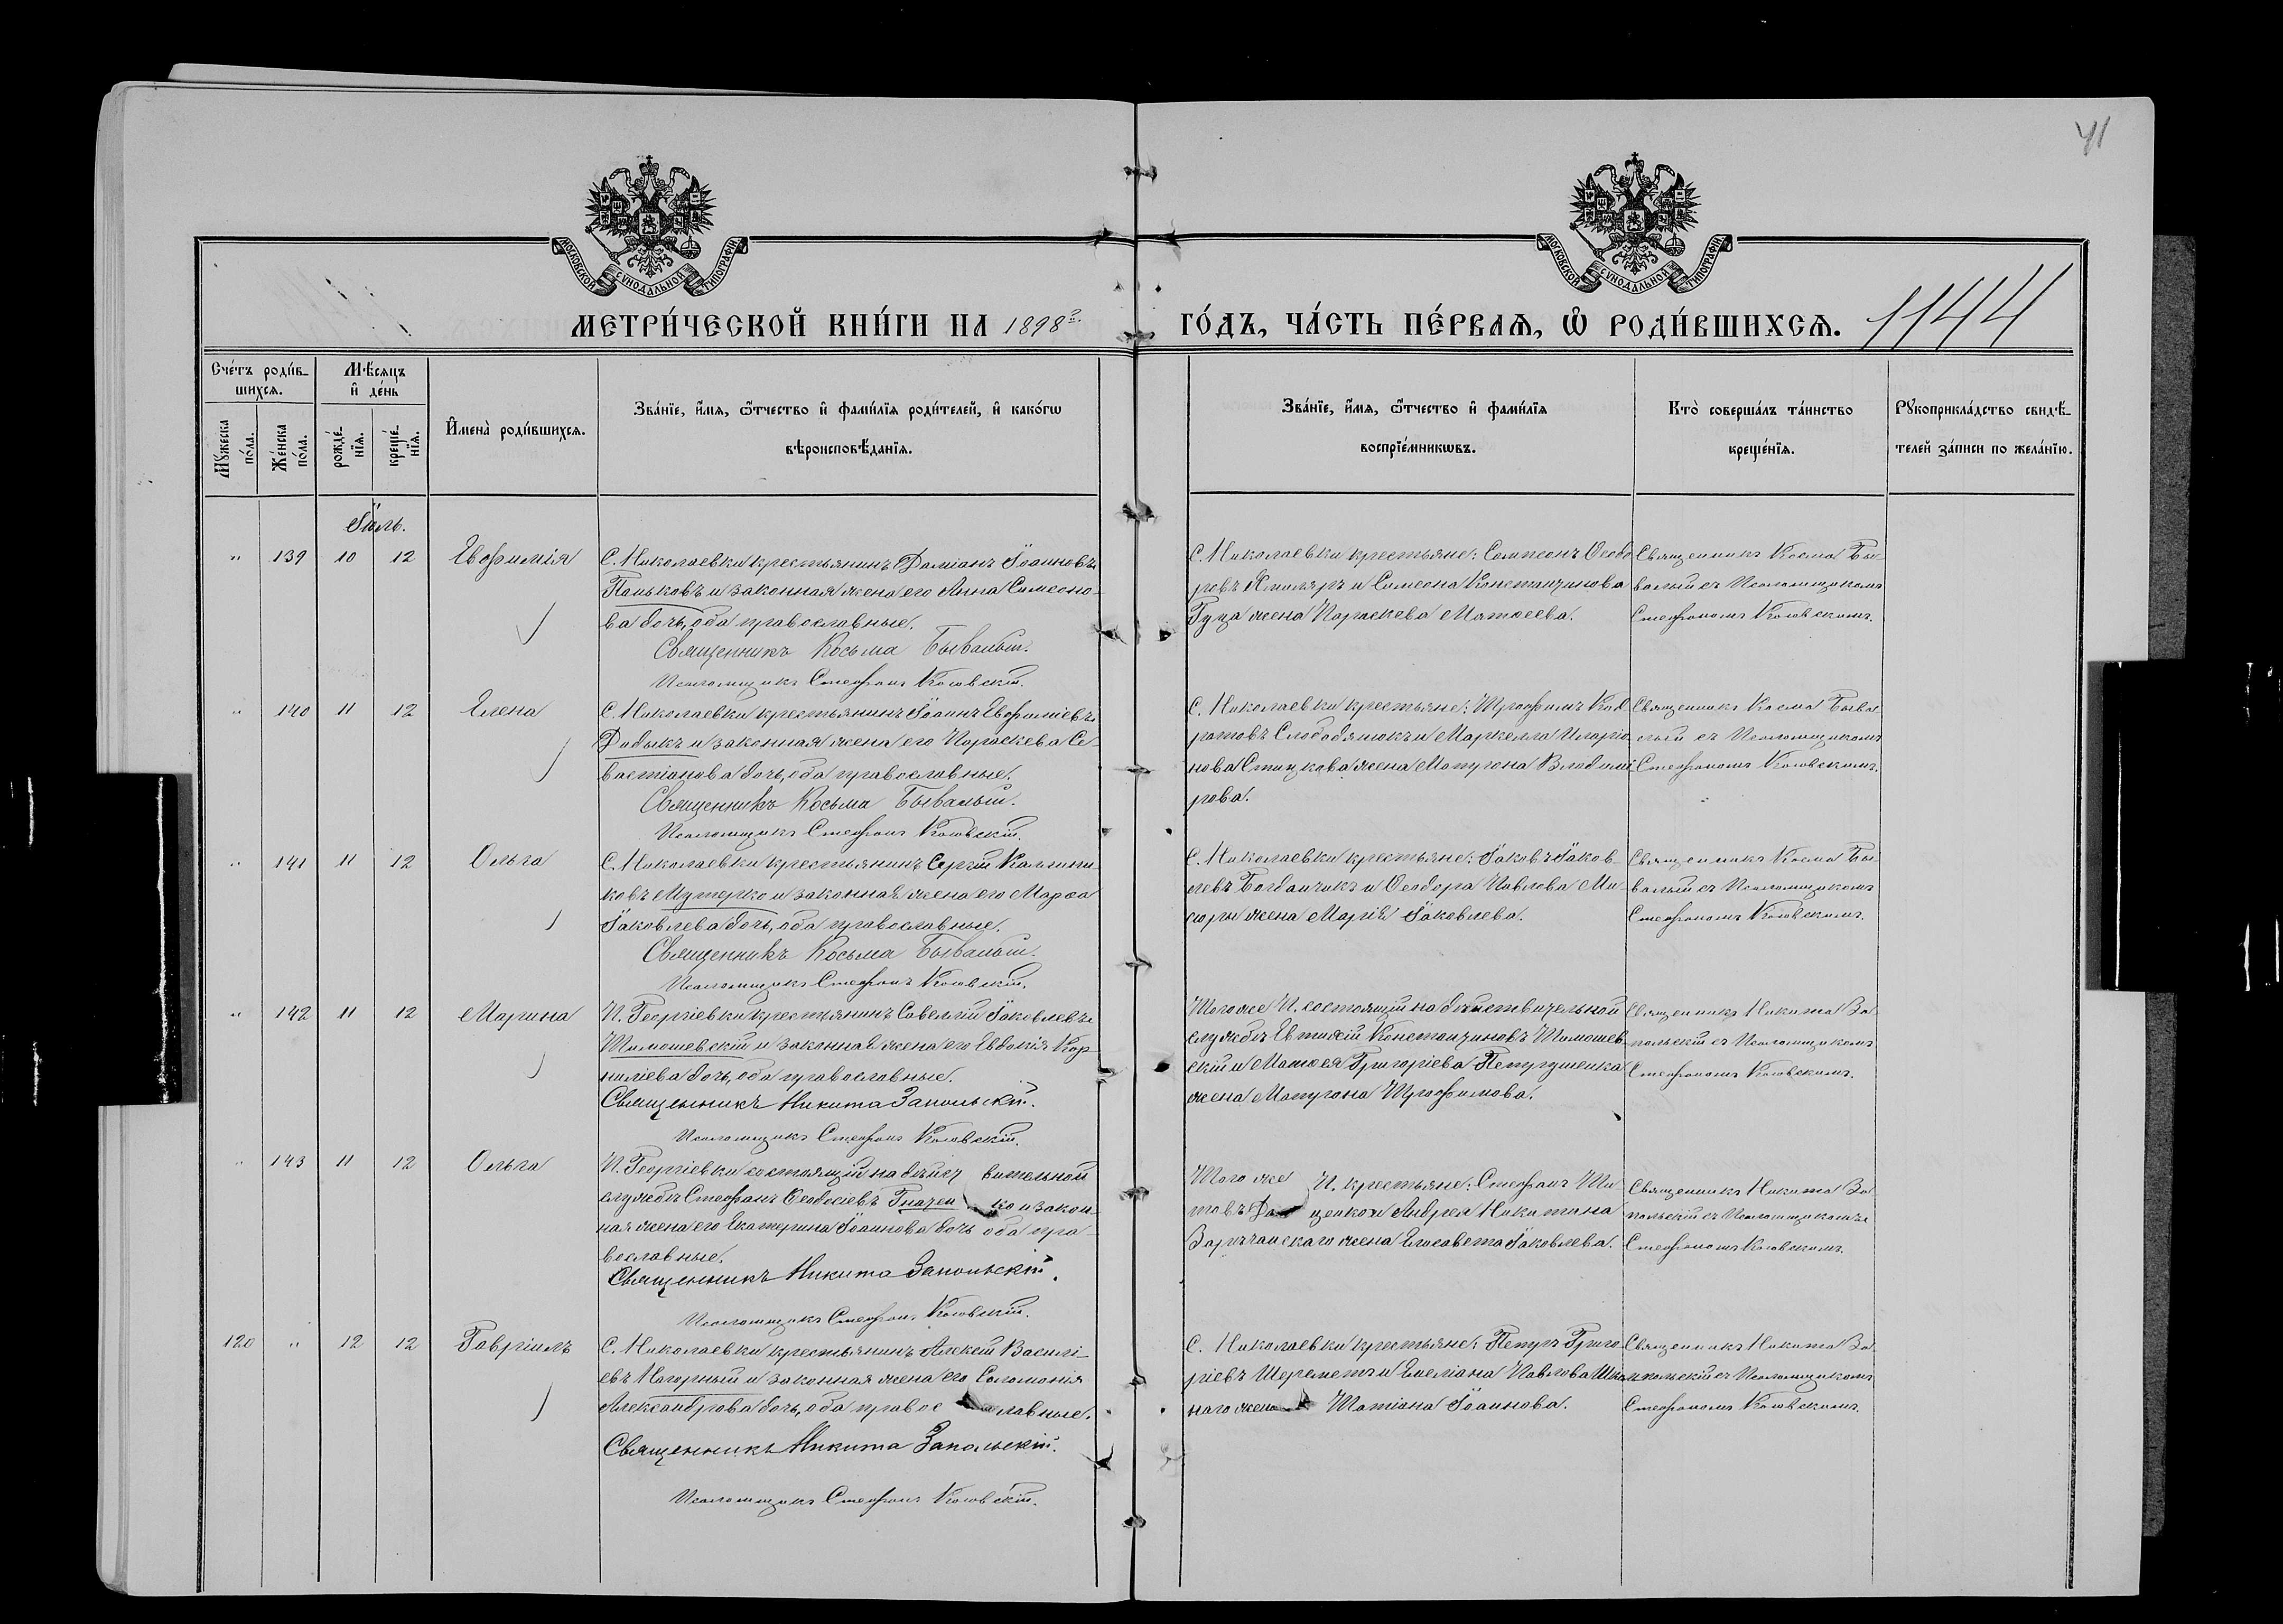 41
МОСКОВСКОЙ СУНОДАЛЬНОЙ ТИПОГРАФІИ
МОСКОВСКОЙ СУНОДАЛЬНОЙ ТИПОГРАФІИ
МЕТРИ́ЧЕСКОЙ КНИ́ГИ НА 1898 г.
ГО́ДЪ, ЧА́СТЬ ПЕ́РВАѦ, Ѡ҆ РОДИ́ВШИХСѦ.
1144
Сче́тъ роди́в-
шихся.
Мѣ́сяцъ
и҆ де́нь
Мꙋ́жеска
по́ла.
Же́нска
по́ла.
рожде́-
нїя.
креще́-
нїя.
И҆мена̀ роди́вшихся.
Зва́нїе, и҆́мя, ѻ҆́тчество и҆ фами́лїя роди́телей, и҆ како́гѡ
вѣроисповѣ́данїя.
Зва́нїе, и҆́мя, ѻ҆́тчество и҆ фами́лїя
воспрїе́мникѡвъ.
Кто̀ соверша́лъ та́инство
креще́нїя.
Рꙋкоприкла́дство свидѣ́-
телей за́писи по жела́нїю.
Іюль.
" 139 10 12 Евфимія
С. Николаевки крестьянинъ Даміанъ Іоанновъ
Паньковъ и законная жена его Анна Симеоно-
ва дочь, оба православные.
Священникъ Косьма Бывалый.
Псаломщикъ Стефанъ Козовскій.
С. Николаевки крестьяне: Сампсонъ Ѳеодо
ровъ Смоляръ и Симеона Константинова
Гуца жена Параскева Матѳеева.
Священникъ Косма Бы-
валый съ Псаломщикомъ
Стефаномъ Козовскимъ.
" 140 11 12 Елена
С. Николаевки крестьянинъ Іоаннъ Евфиміевъ
Дадыкъ и законная жена его Параскева Се-
вастіанова дочь, оба православные.
Священникъ Косьма Бывалый.
Псаломщикъ Стефанъ Козовскій.
С. Николаевки крестьяне: Трофимъ Код
ратовъ Слободянюкъ и Маркелла Иларіо-
нова Стицкова жена Матрона Владими
рова.
Священникъ Косма Быва-
лый съ Псаломщикомъ
Стефаномъ Козовскимъ.
" 141 11 12 Ольга
С. Николаевки крестьянинъ Сергій Каллини-
ковъ Мутерко и законная жена его Марѳа
Іаковлева дочь, оба православные.
Священникъ Косьма Бывалый.
Псаломщикъ Стефанъ Козовскій.
С. Николаевки крестьяне: Іаковъ Іаков-
левъ Богданчикъ и Ѳеодора Павлова Ми-
сюры жена Марія Іаковлева.
Священникъ Косма Бы-
валый съ Псаломщикомъ
Стефаномъ Козовскимъ.
" 142 11 12 Марина
П. Георгіевки крестьянинъ Савелій Іаковлевъ
Томошевскій и законная жена его Евдокія Кор-
ниліева дочь, оба православные.
Священникъ Никита Запольскій.
Псаломщикъ Стефанъ Козовскій.
Того же П. состоящій на дѣйствительной
службѣ Евтихій Константиновъ Томошев-
скій и Матѳея Григоріева Петрушенка
жена Матрона Трофимова.
Священникъ Никита За-
польскій съ Псаломщикомъ
Стефаномъ Козовскимъ.
" 143 11 12 Ольга
П. Георгіевки состоящій на дѣйст вительной
службѣ Стефанъ Ѳеодосіевъ Гначен ко и закон-
ная жена его Екатерина Іоаннова дочь оба пра-
вославные.
Священникъ Никита Запольскій.
Псаломщикъ Стефанъ Козовскій.
Того же П. крестьяне: Стефанъ Ти
товъ и Андрея Никитина
Заречанскаго жена Елисавета Іаковлева.
Священникъ Никита За-
польскій съ Псаломщикомъ
Стефаномъ Козовскимъ.
120 " 12 12 Гавріилъ
С. Николаевки крестьянинъ Алексій Василі-
евъ Нагорный и законная жена его Соломонія
Александрова дочь, оба правос лавные.
Священникъ Никита Запольскій.
Псаломщикъ Стефанъ Козовскій.
С. Николаевки крестьяне: Петръ Григо
ріевъ Шереметъ и Емеліана Павлова
наго жена Татіана Іоаннова.
Священникъ Никита За-
польскій съ Псаломщикомъ
Стефаномъ Козовскимъ.